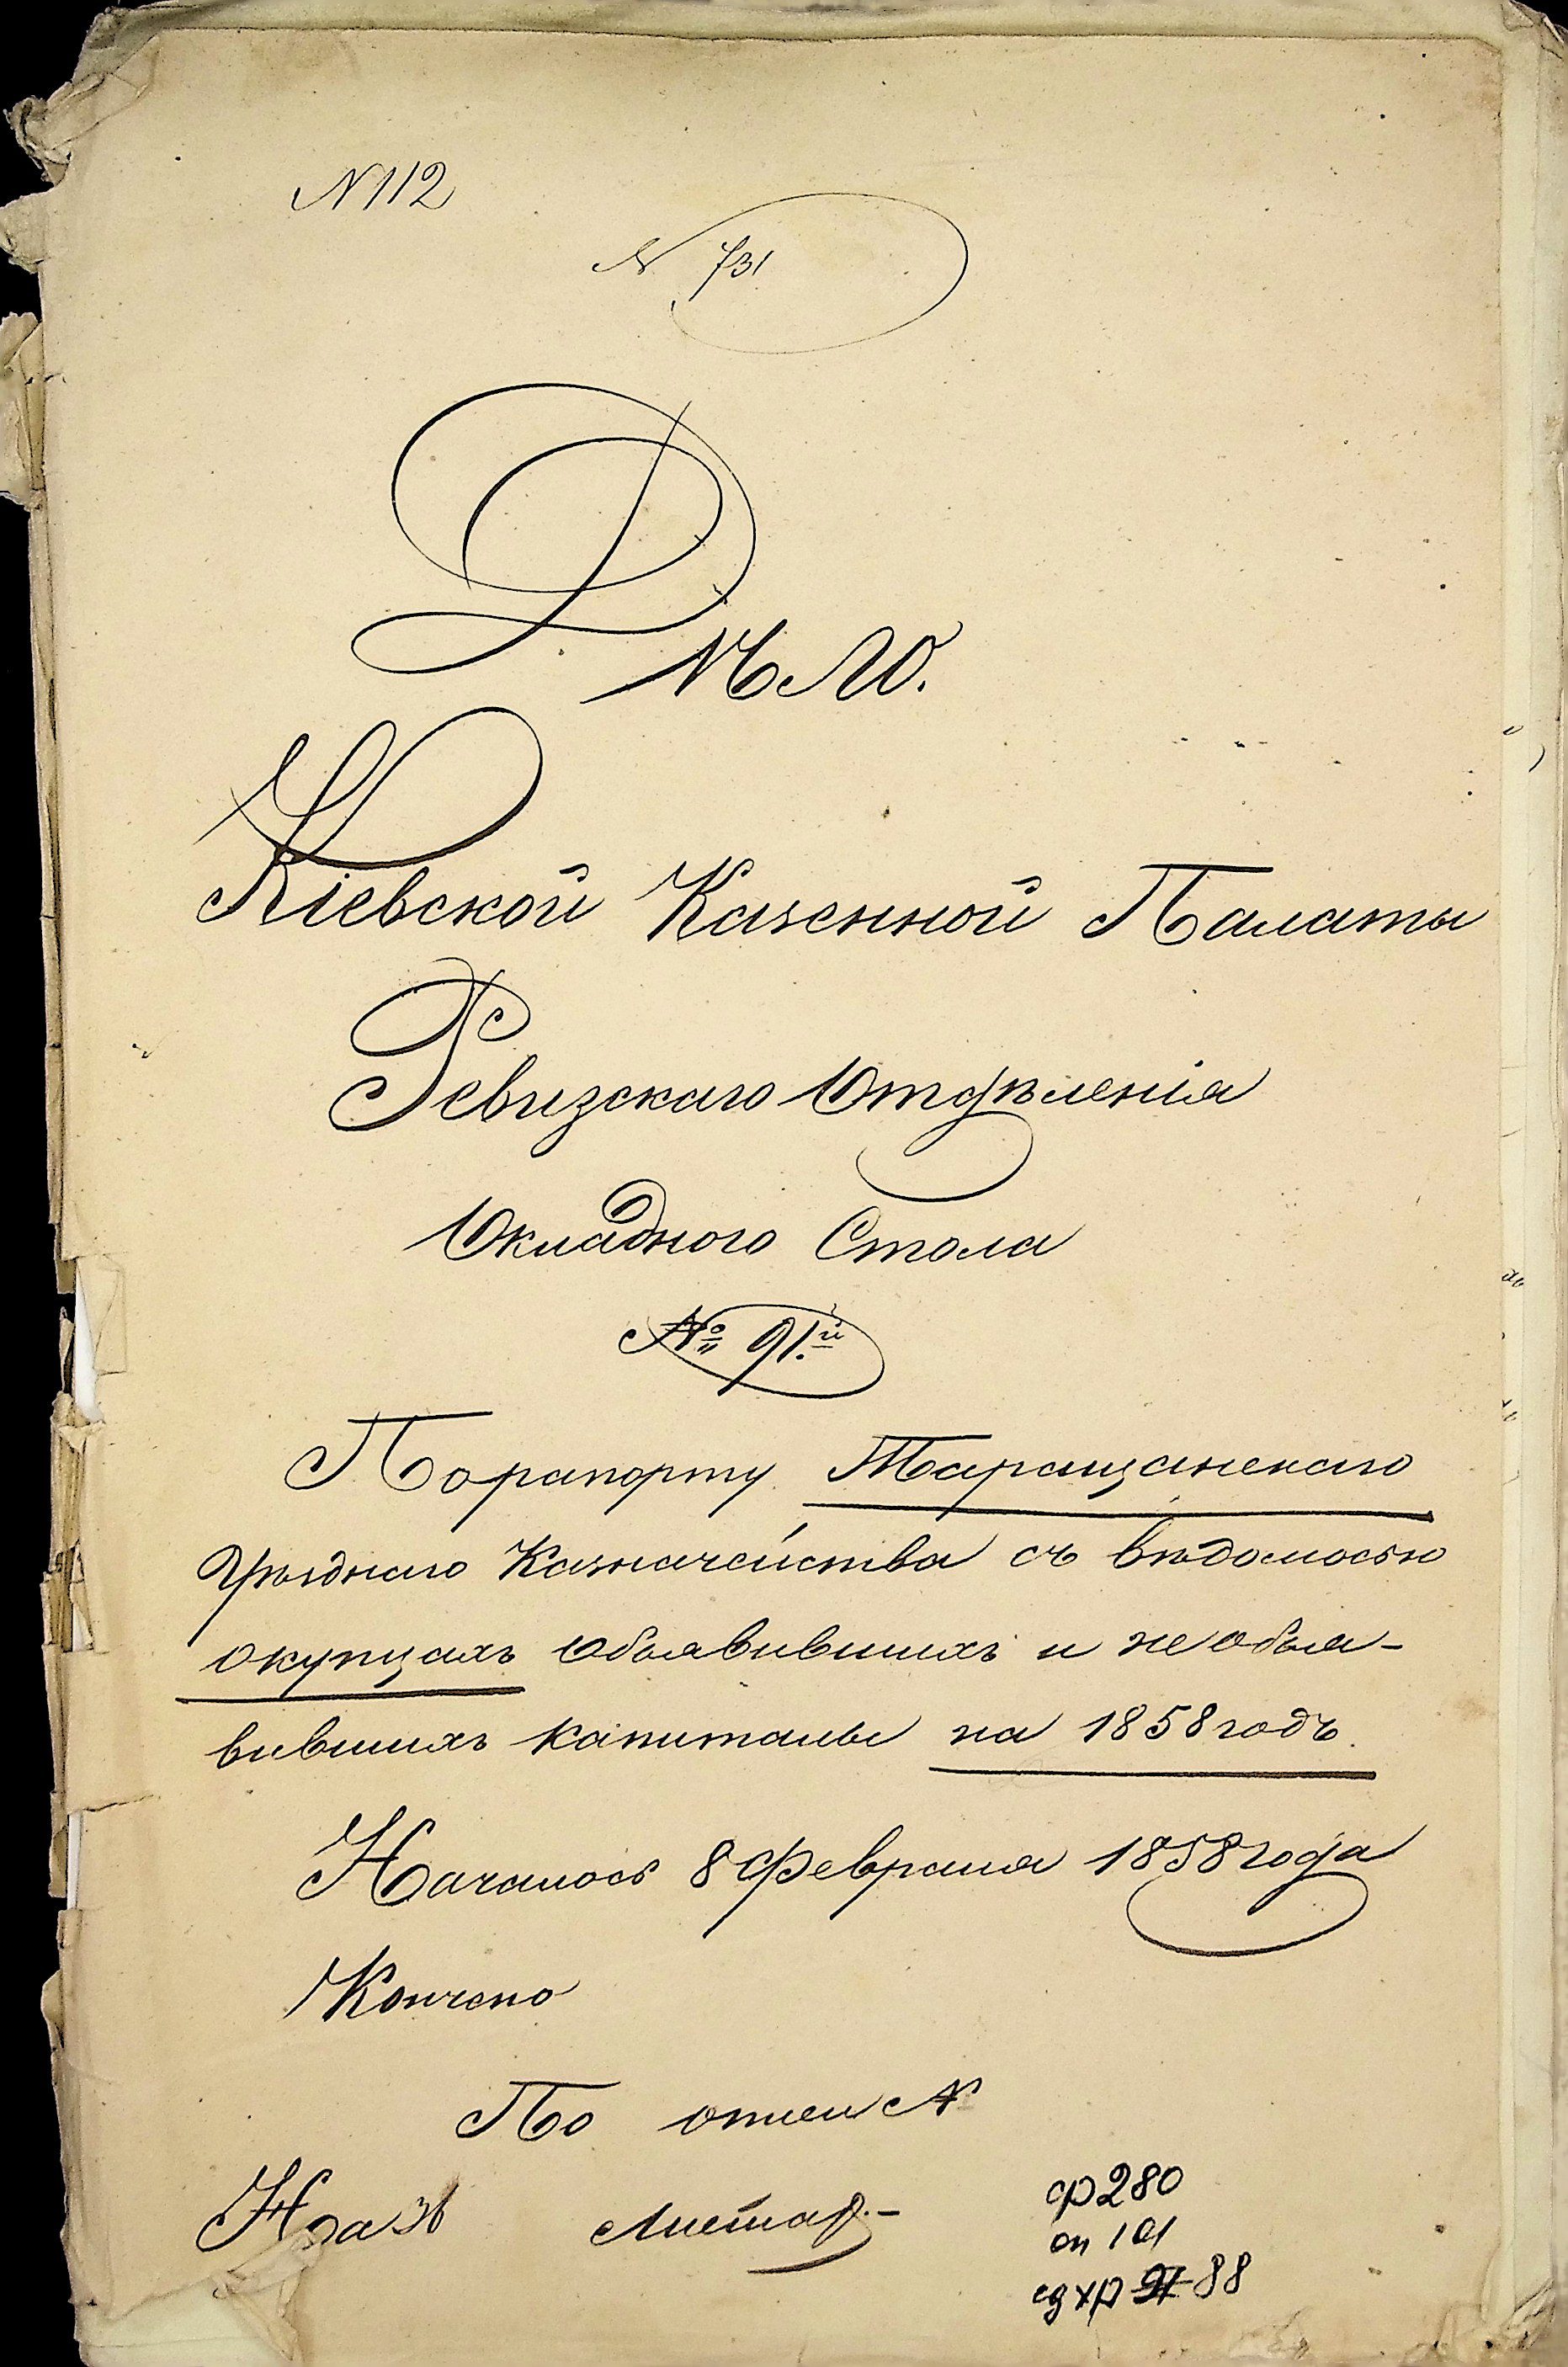 N 112
N 731
Дѣло.
Кіевской Казенной Палаты
Ревизскаго Отдѣленія
Окладного Стола
№ 91.й
По рапорту Таращанскаго
Уѣзднаго Казначейства съ вѣдомостью
о купцахъ Объявившихъ и не объя-
вившихъ капиталы на 1858 годъ.
Началось 8 Февраля 1858 года
Кончено
По описи N
На 36 листах.-
ф 280
оп 101
ед хр 91 88